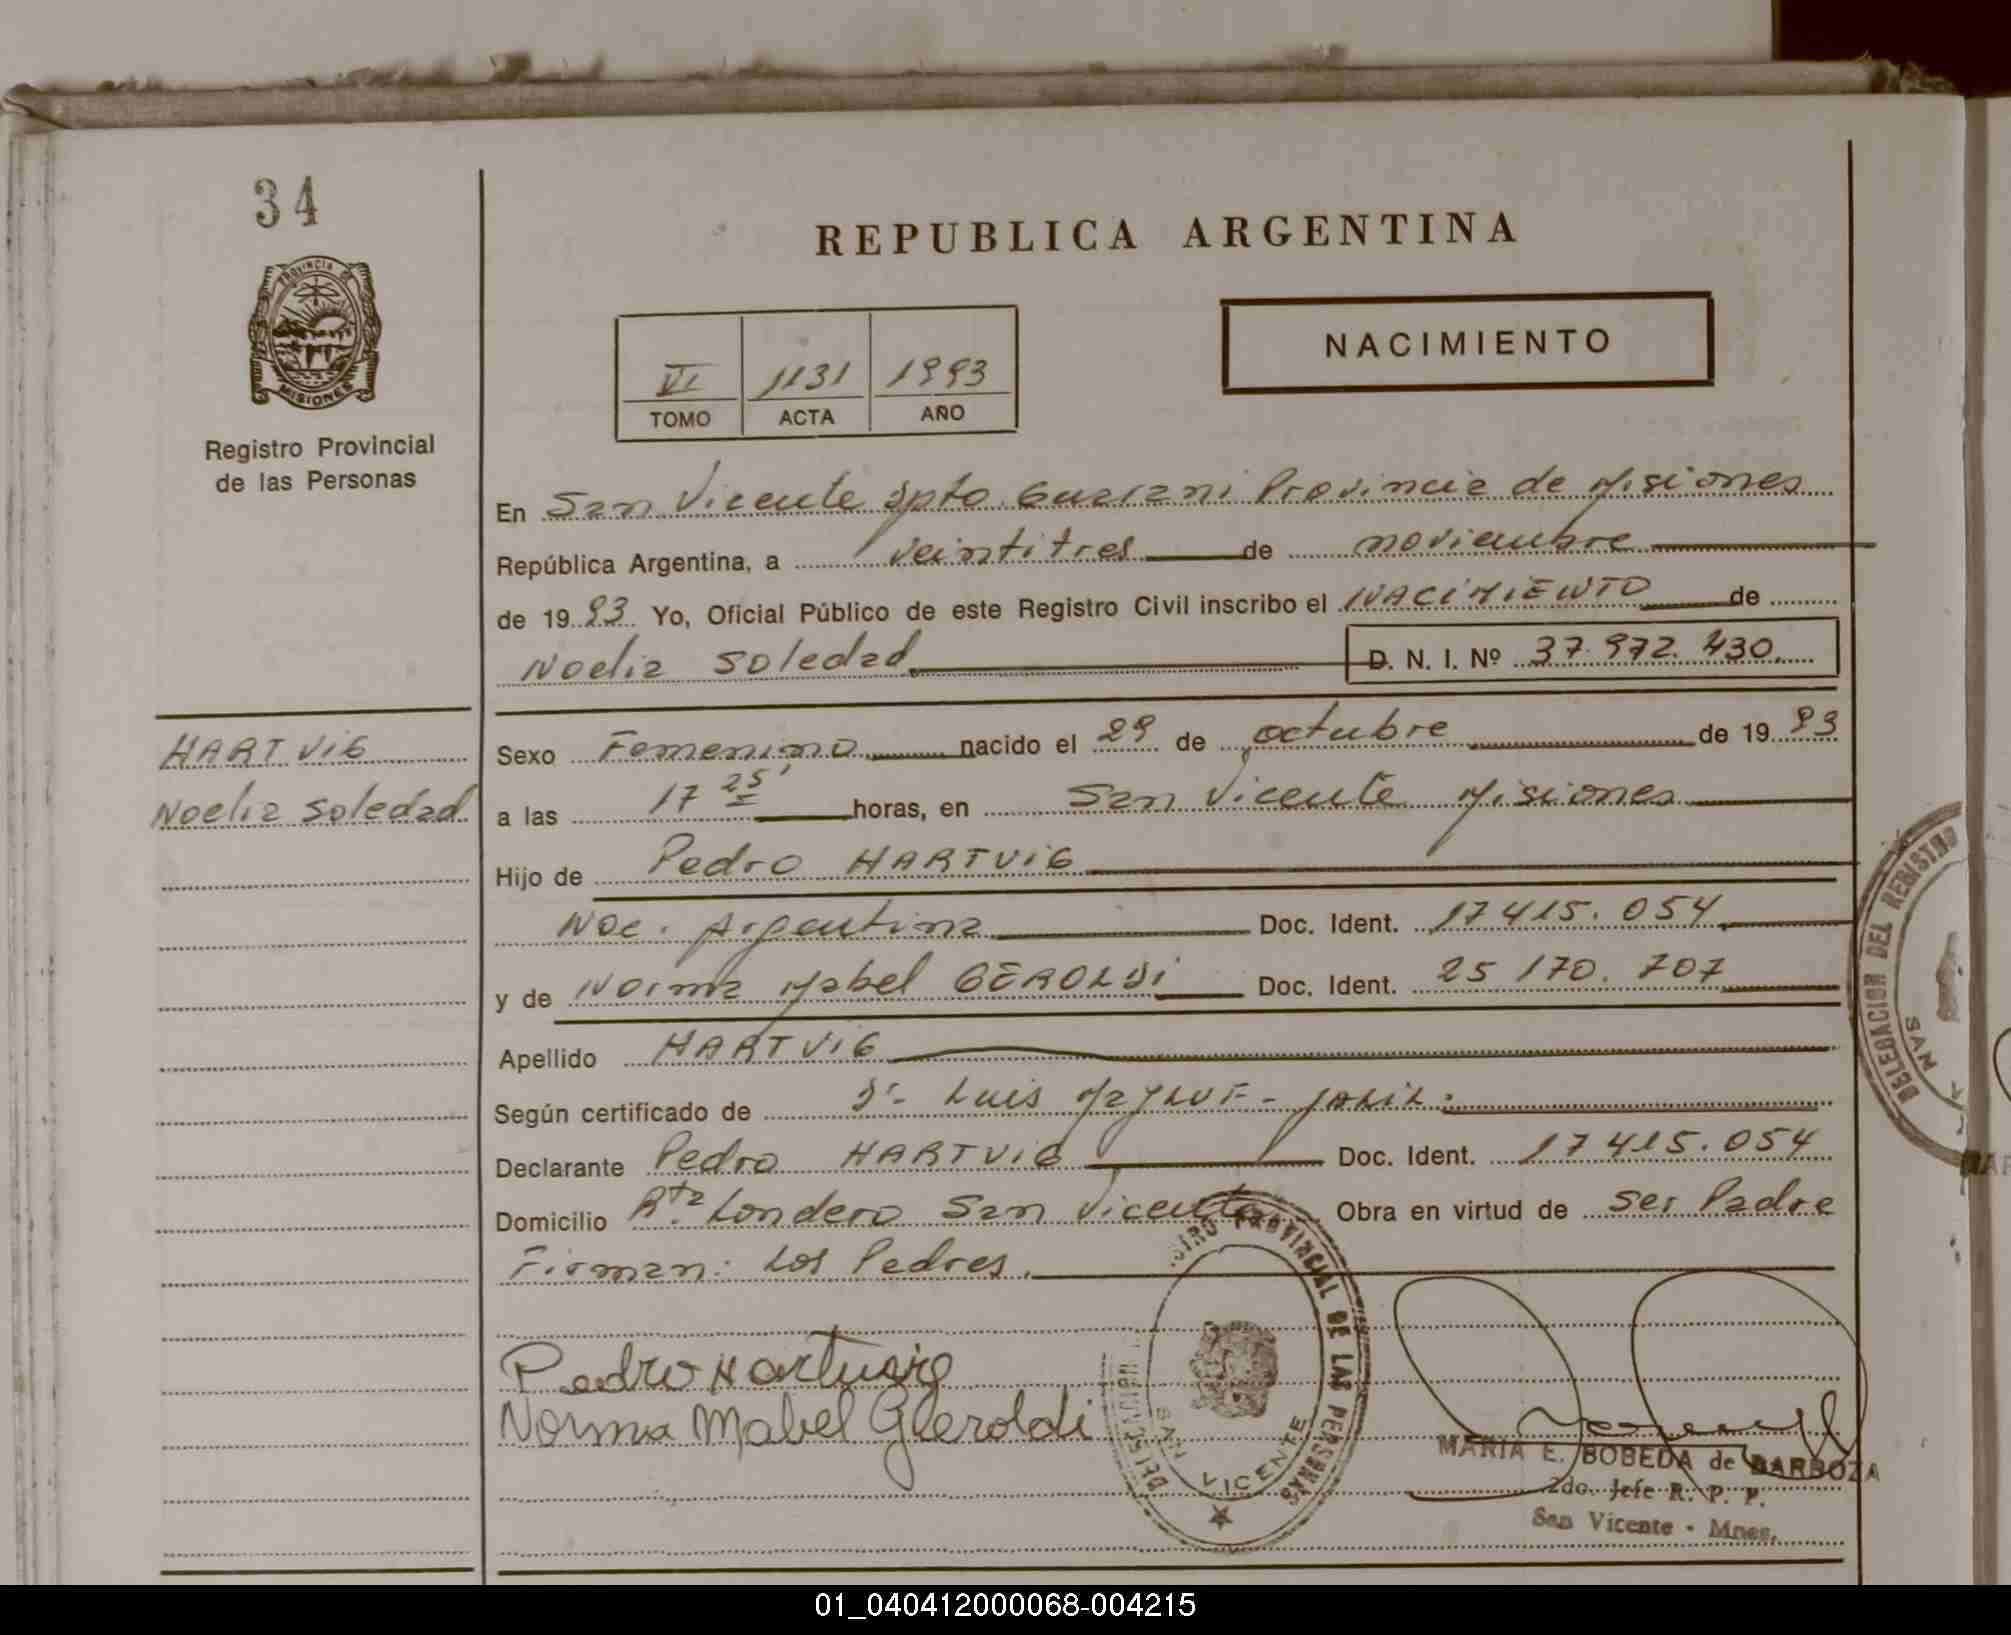 34
REPUBLICA ARGENTINA
PROVINCIA DE
MISIONES
NACIMIENTO
VI 1131 1993
TOMO ACTA AÑO
Registro Provincial
de las Personas
En San Vicente Dpto. Guarani Provincia de Misiones
República Argentina, a veintitres de noviembre
de 1993 Yo, Oficial Público de este Registro Civil inscribo el NACIMIENTO de
Noelia Soledad D. N. I. Nº 37.972.430.
HARTVIG
Noelia Soledad
Sexo Femenino nacido el 29 de octubre de 1993
a las 17 25' horas, en San Vicente Misiones
Hijo de Pedro HARTVIG
Nac. Argentina Doc. Ident. 17415.054
y de Norma Mabel GEROLDI Doc. Ident. 25 170.707
Apellido HARTVIG
Según certificado de Dr. Luis JALIL.
Declarante Pedro HARTVIG Doc. Ident. 17415.054
Domicilio Rta. Londero San Vicente Obra en virtud de Ser Padre
Firman: Los Padres.
Pedro Hartvig
Norma Mabel Geroldi
REGISTRO PROVINCIAL DE LAS PERSONAS
DELEGACION SAN VICENTE
MARIA E. BOBEDA de BARBOZA
2do. Jefe R. P. P.
San Vicente - Mnes.
DELEGACION DEL REGISTRO
SAN
01_040412000068-004215